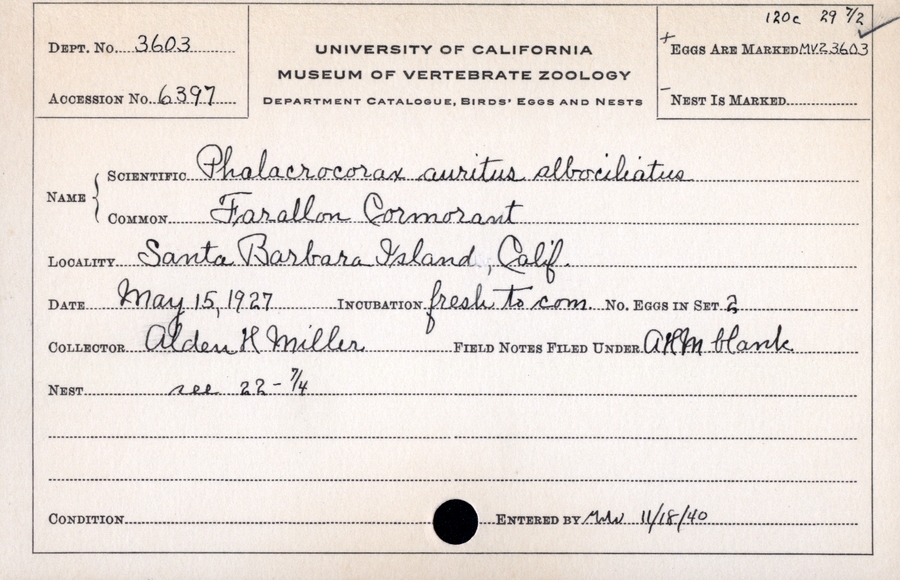 120c 29 7/2
Dept. No. 3603
UNIVERSITY OF CALIFORNIA
+ Eggs Are Marked MVZ3603
MUSEUM OF VERTEBRATE ZOOLOGY
Accession No. 6397
Department Catalogue, Birds' Eggs and Nests
- Nest Is Marked
Name { Scientific Phalacrocorax auritus albociliatus
Common Farallon Cormorant
Locality Santa Barbara Island, Calif.
Date May 15, 1927 Incubation fresh to com. No. Eggs in Set 2
Collector Alden H Miller Field Notes Filed Under AHM blank
Nest see 22-7/4
Condition Entered by 11/18/40